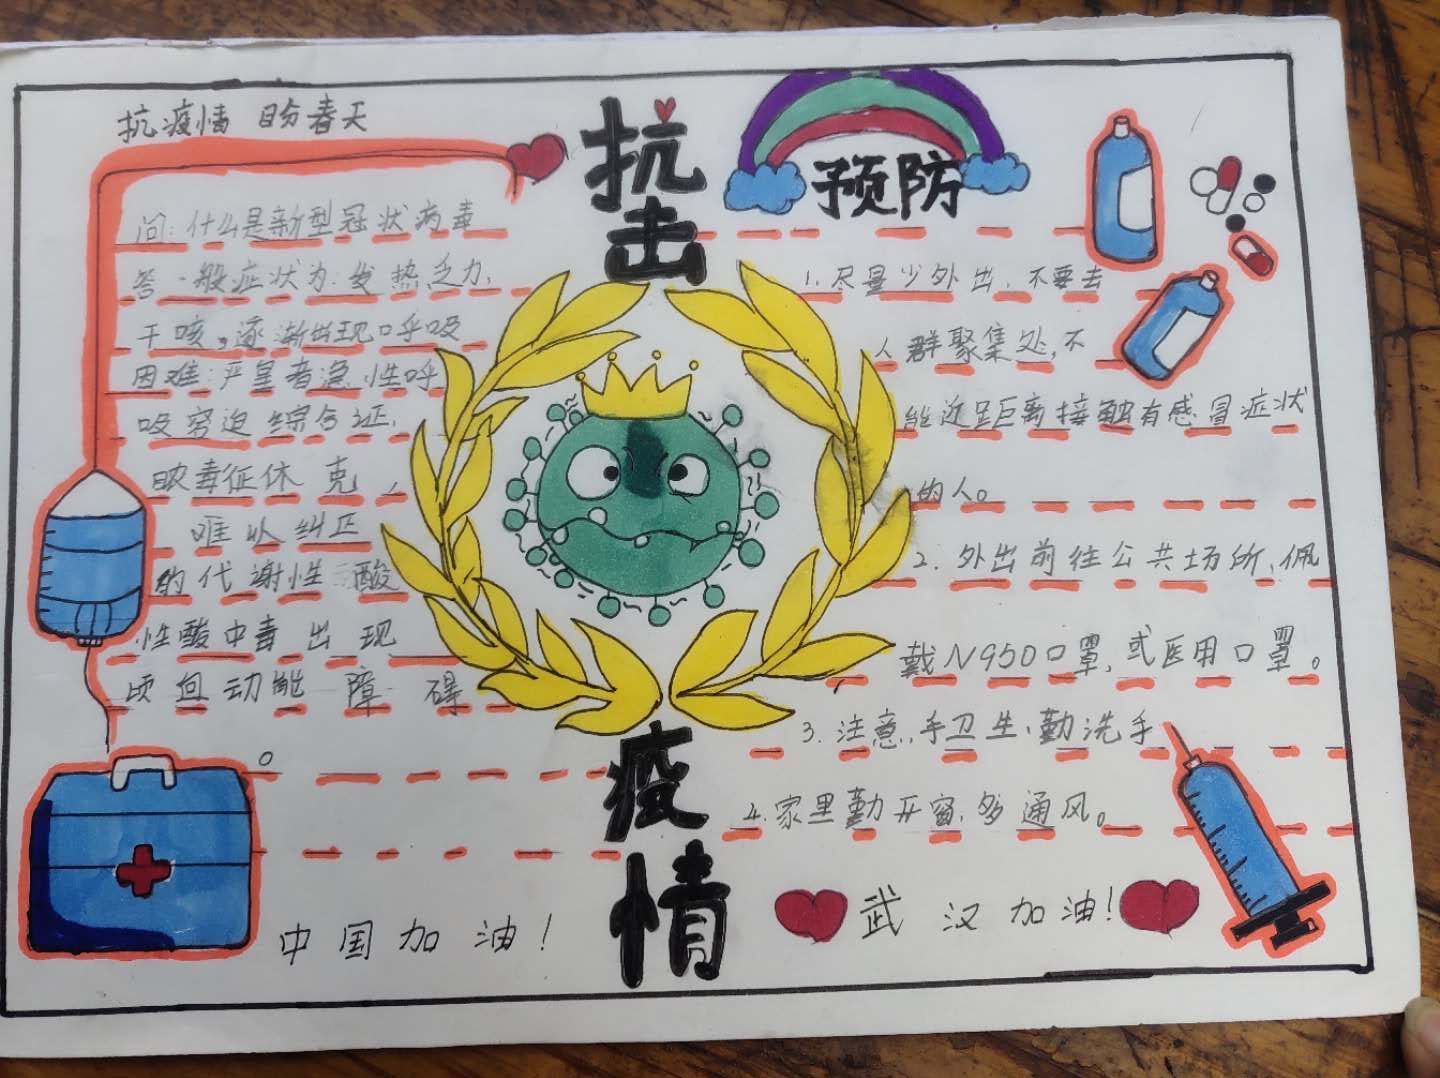 抗疫情 盼春天
问:什么是新型冠状病毒
答一般症状为:发热乏力,
干咳,逐渐出现呼吸
困难:严重者急性呼
吸窘迫综合证,
脓毒征休克、
难以纠正
的代谢性酸
性酸中毒出现
顷血动能障碍
。
中国加油!
抗击
疫情
预防
1.尽量少外出,不要去
人群聚集处,不
能近距离接触有感冒症状
的人。
2.外出前往公共场所,佩
戴N950口罩,或医用口罩。
3.注意,手卫生,勤洗手
4.家里勤开窗,多通风。
武汉加油!